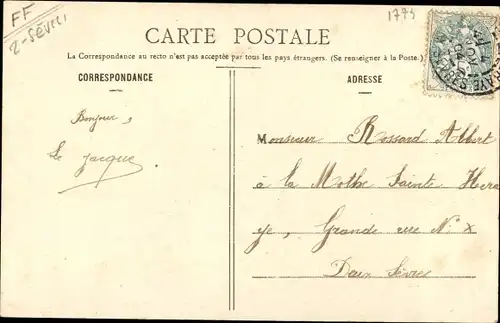 FF
2-SÉVRES
1775
CARTE POSTALE
La Correspondance au recto n'est pas acceptée par tous les pays étrangers. (Se renseigner à la Poste.)
CORRESPONDANCE
ADRESSE
Bonjour,
Le Jacques
Monsieur Rossard Albert
à la Mothe Sainte Hera
ye, Grande rue N: x
Deux Sèvres